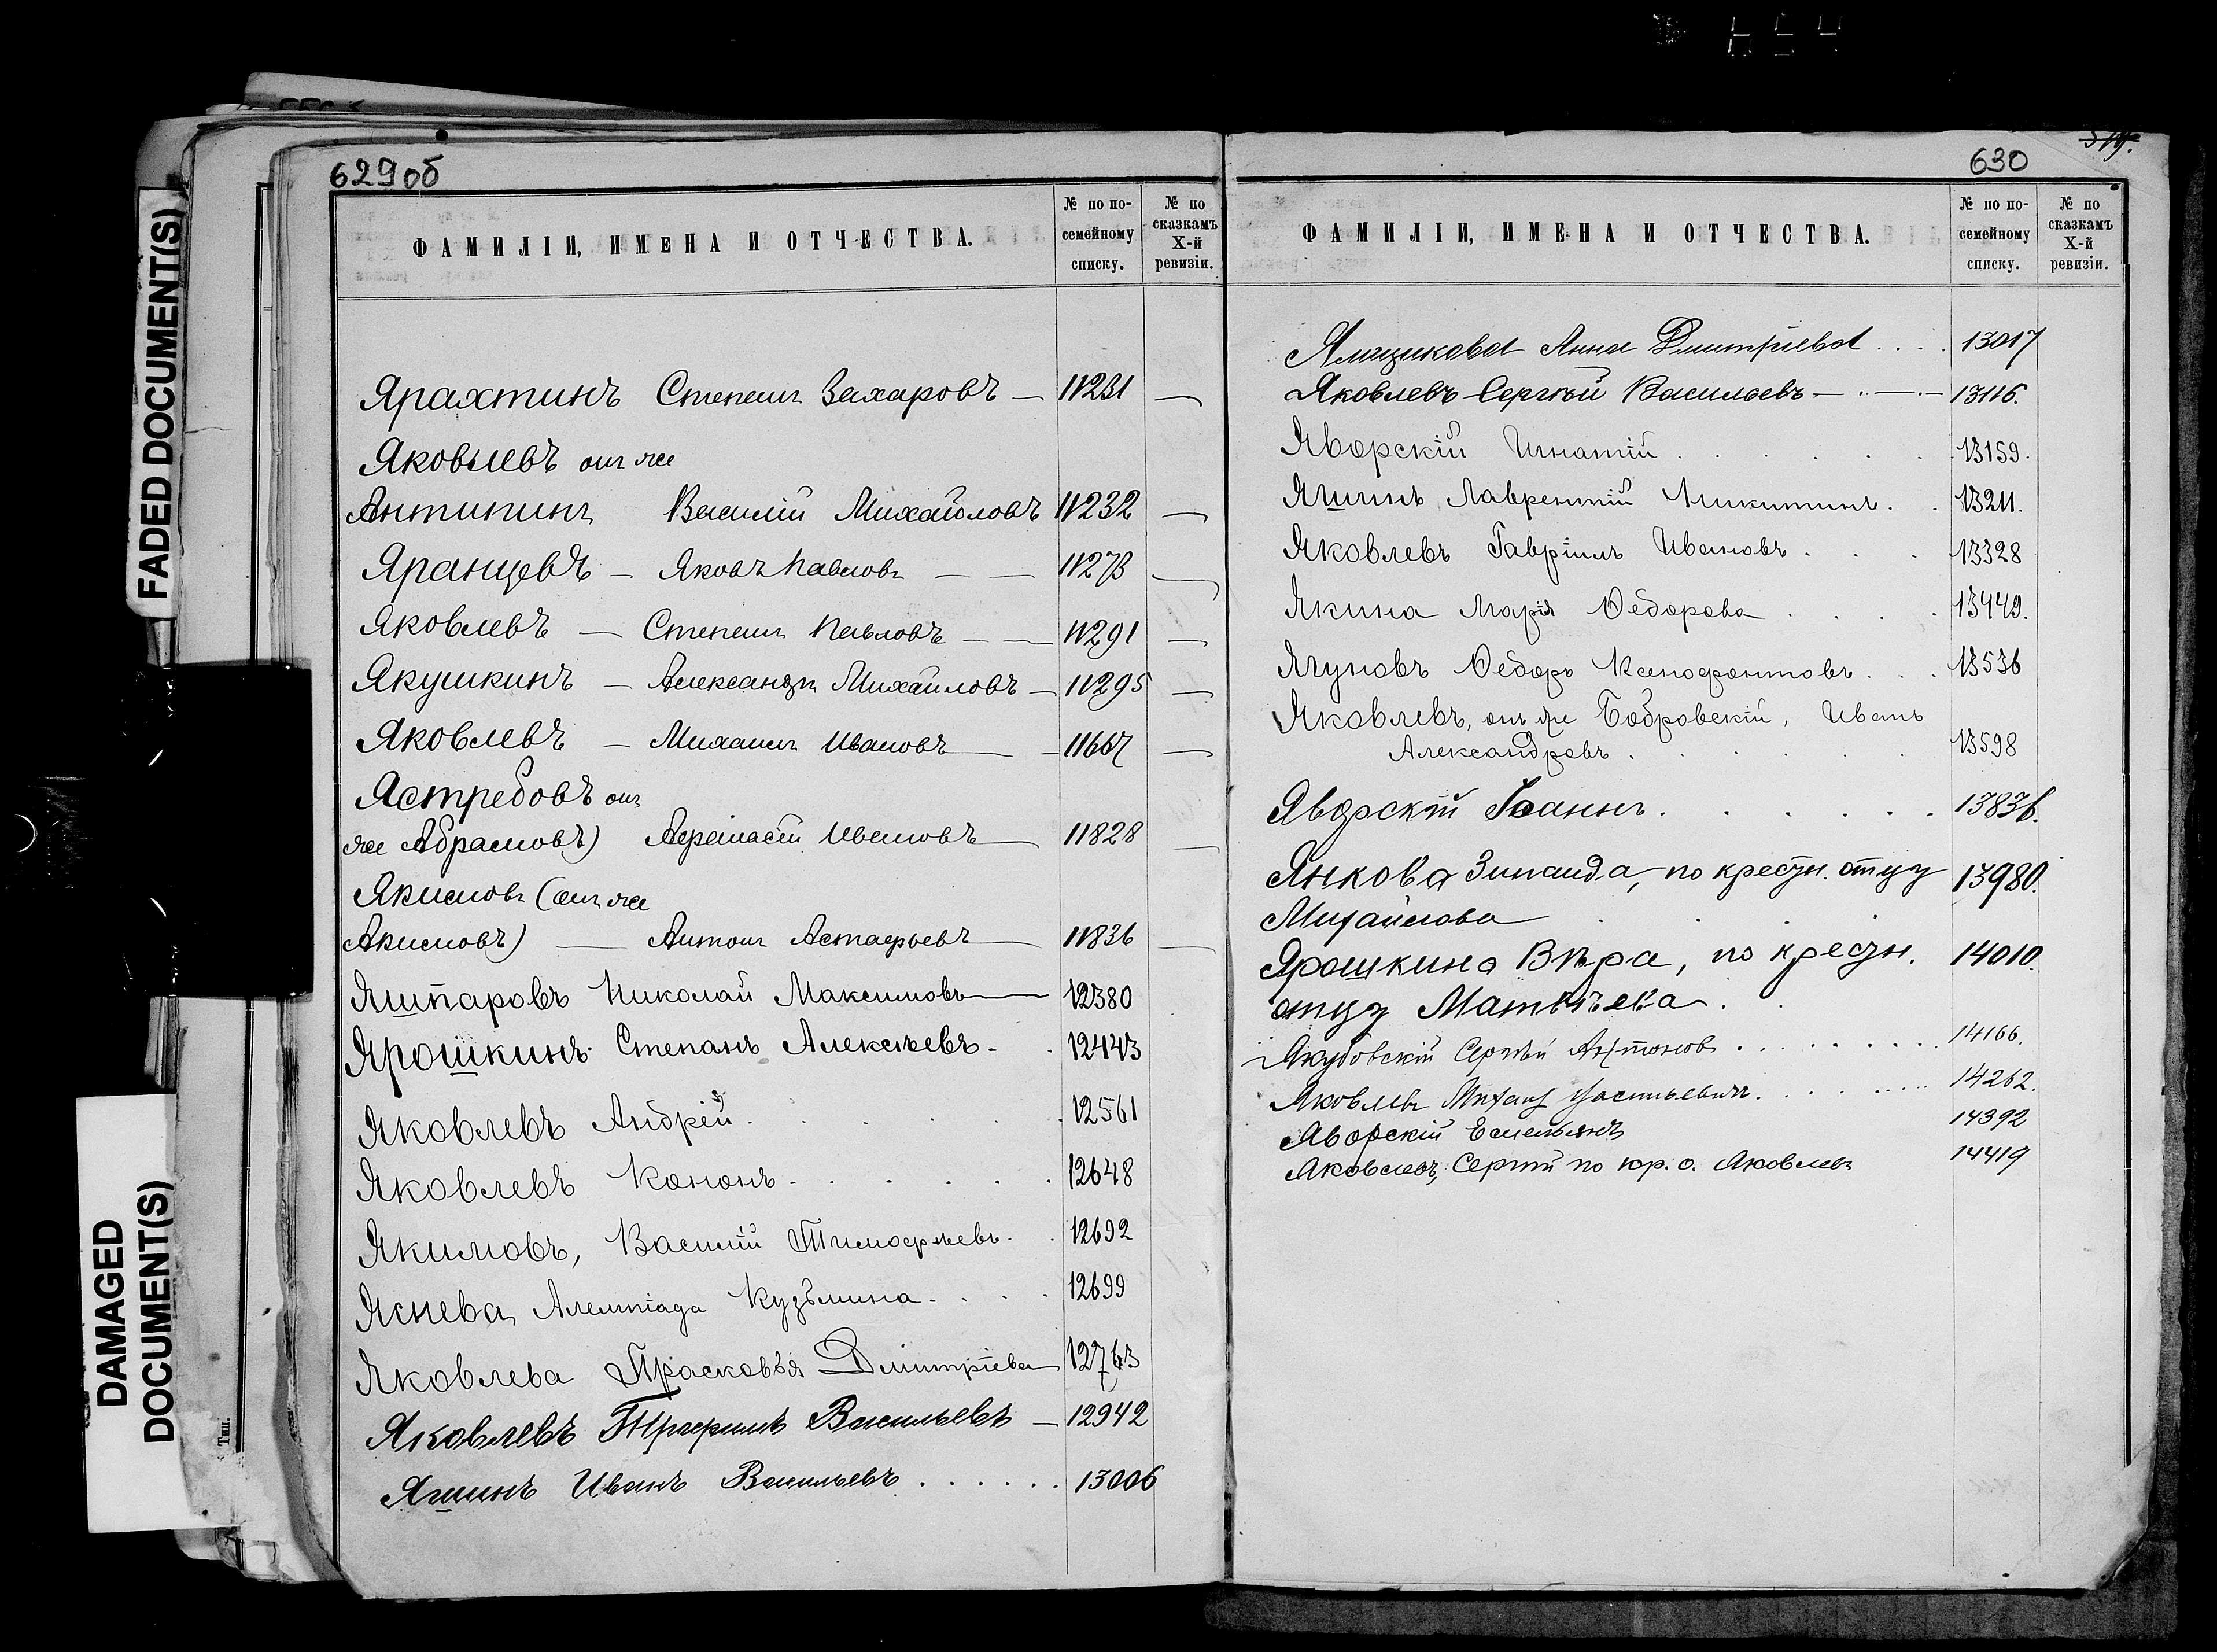 629об
ФАМИЛІИ, ИМЕНА И ОТЧЕСТВА.
№ по по-
семейному
списку.
№ по
сказкамъ
X-й
ревизіи.
Ярахтинъ Степанъ Захаровъ — 11231 —
Яковлевъ онъ же
Антипинъ Василій Михайловъ 11232 —
Яранцевъ — Яковъ Павловъ — — 11273 —
Яковлевъ — Степанъ Павловъ — — 11291 —
Якушкинъ — Александръ Михайловъ — 11295 —
Яковлевъ — Михаилъ Ивановъ — 11667 —
Ястребовъ онъ
же Абрамовъ) Афанасій Ивановъ — 11828 —
Якимовъ (онъ же
Акимовъ) — Антонъ Астафьевъ — 11836 —
Яшпаровъ Николай Максимовъ — 12380
Ярошкинъ Степанъ Алексѣевъ - . 12443
Яковлевъ Андрей . . . . . . 12561
Яковлевъ Кононъ . . . . . . 12648
Якимовъ, Василій Тимофѣевъ . . 12692
Яснева Алемпіада Кузьмина . . . . 12699
Яковлева Прасковья Дмитріева 12763
Яковлевъ Васильевъ — 12942
Яшинъ Иванъ Васильевъ . . . . . . 13006
630
519.
ФАМИЛІИ, ИМЕНА И ОТЧЕСТВА.
№ по по-
семейному
списку.
№ по
сказкамъ
X-й
ревизіи.
Ямщикова Анна Дмитріева . . . . 13017
Яковлевъ Сергѣй Васильевъ — . — . — 13116.
Яворскій Игнатій . . . . . . 13159.
Яшинъ Лаврентій Никитинъ . . 13211.
Яковлевъ Гавріилъ Ивановъ . . . 13328
Якина Марія Ѳедорова . . . . 13449.
Ягуновъ Ѳедоръ Ксенофонтовъ . . . 13536
Яковлевъ, онъ же Бобровскій, Иванъ
Александровъ . . . . . . 13598
Яворскій Іоаннъ . . . . . . 13836.
Янкова Зинаида, по крестн. отцу 13980.
Михайлова . . . .
Ярошкина Вѣра, по крестн. 14010.
отцу Матвѣева . .
Якубовскій Сергѣй Антоновъ . . . . . . . . . 14166.
Яковлевъ Михаилъ Васильевичъ . . . . . . . 14262.
Яворскій Емельянъ 14392
Яковлевъ, Сергѣй по кр. о. Яковлевъ 14419
FADED DOCUMENT(S)
DAMAGED
DOCUMENT(S)
Тип.